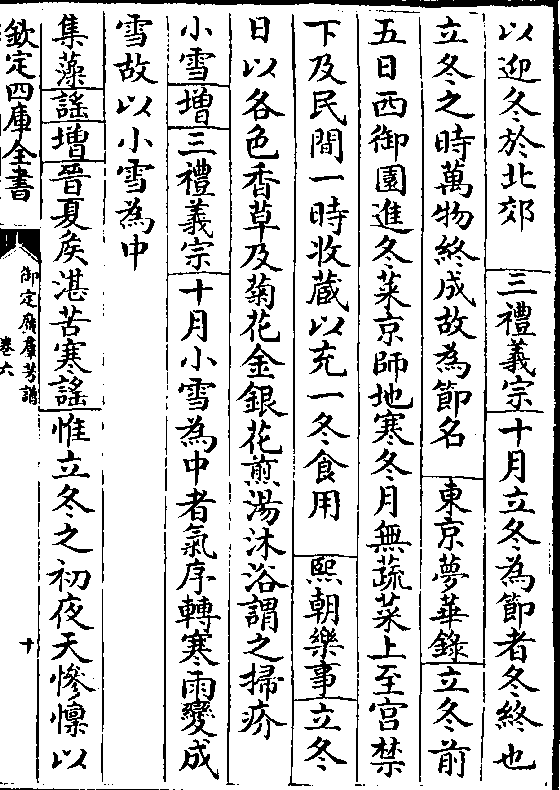 以迎冬於北郊　三禮義宗十月立冬為節者冬終也
立冬之時萬物終成故為節名　東京夢華錄立冬前
五日西御園進冬菜京師地寒冬月無蔬菜上至宫禁
下及民間一時收蔵以充一冬食用　熙朝樂事立冬
日以各色香草及菊花金銀花煎湯沐浴謂之掃疥
小雪增三禮義宗十月小雪為中者氣序轉寒雨變成
雪故以小雪為中
集藻謡增晉夏侯湛苦寒謡惟立冬之初夜天慘懍以
欽定四庫全書
御定廣羣芳譜
卷六
十